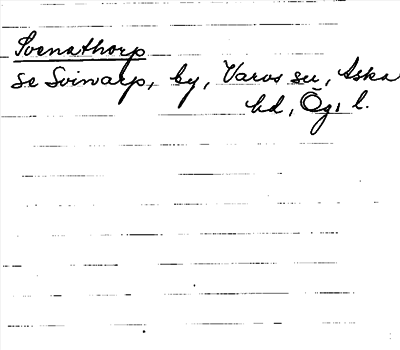 Svenathorp
se Svinarp, by, Varvs sn, Aska
hd, Ög. l.